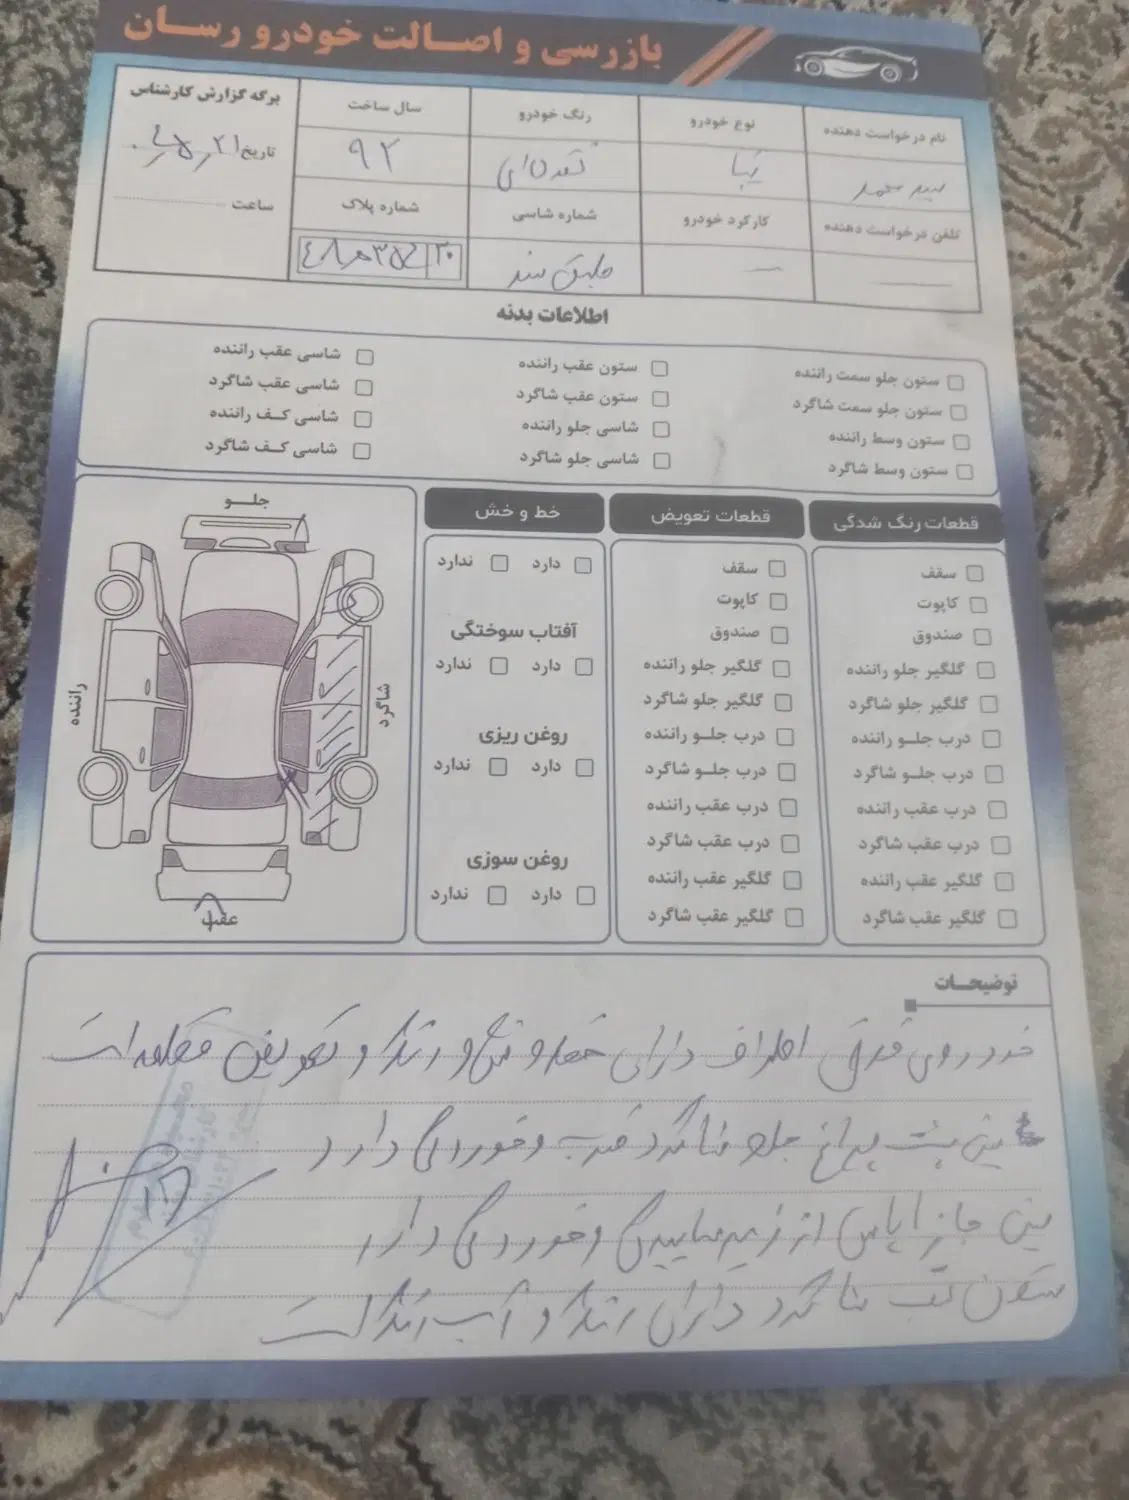 بازرسی و اصالت خودرو رسان
نام درخواست دهنده
نوع خودرو
رنگ خودرو
سال ساخت
برگه گزارش کارشناس
تیبا
نقره‌ای
۹۲
تاریخ
تلفن درخواست دهنده
کارکرد خودرو
شماره شاسی
شماره پلاک
ساعت
طبق سند
اطلاعات بدنه
ستون جلو سمت راننده
ستون عقب راننده
شاسی عقب راننده
ستون جلو سمت شاگرد
ستون عقب شاگرد
شاسی عقب شاگرد
ستون وسط راننده
شاسی جلو راننده
شاسی کف راننده
ستون وسط شاگرد
شاسی جلو شاگرد
شاسی کف شاگرد
قطعات رنگ شدگی
سقف
کاپوت
صندوق
گلگیر جلو راننده
گلگیر جلو شاگرد
درب جلو راننده
درب جلو شاگرد
درب عقب راننده
درب عقب شاگرد
گلگیر عقب راننده
گلگیر عقب شاگرد
قطعات تعویض
سقف
کاپوت
صندوق
گلگیر جلو راننده
گلگیر جلو شاگرد
درب جلو راننده
درب جلو شاگرد
درب عقب راننده
درب عقب شاگرد
گلگیر عقب راننده
گلگیر عقب شاگرد
خط و خش
دارد ندارد
آفتاب سوختگی
دارد ندارد
روغن ریزی
دارد ندارد
روغن سوزی
دارد ندارد
جلو
راننده
شاگرد
عقب
توضیحات
خودروی فوق اطراف دارای و رنگ و تعویض قطعه است
سینی پشت چراغ جلو شاگرد ضرب و خوردگی دارد
سینی جازاپاس از زیر ساییدگی و خوردگی دارد
ستون عقب شاگرد دارای رنگ و آب رنگ است